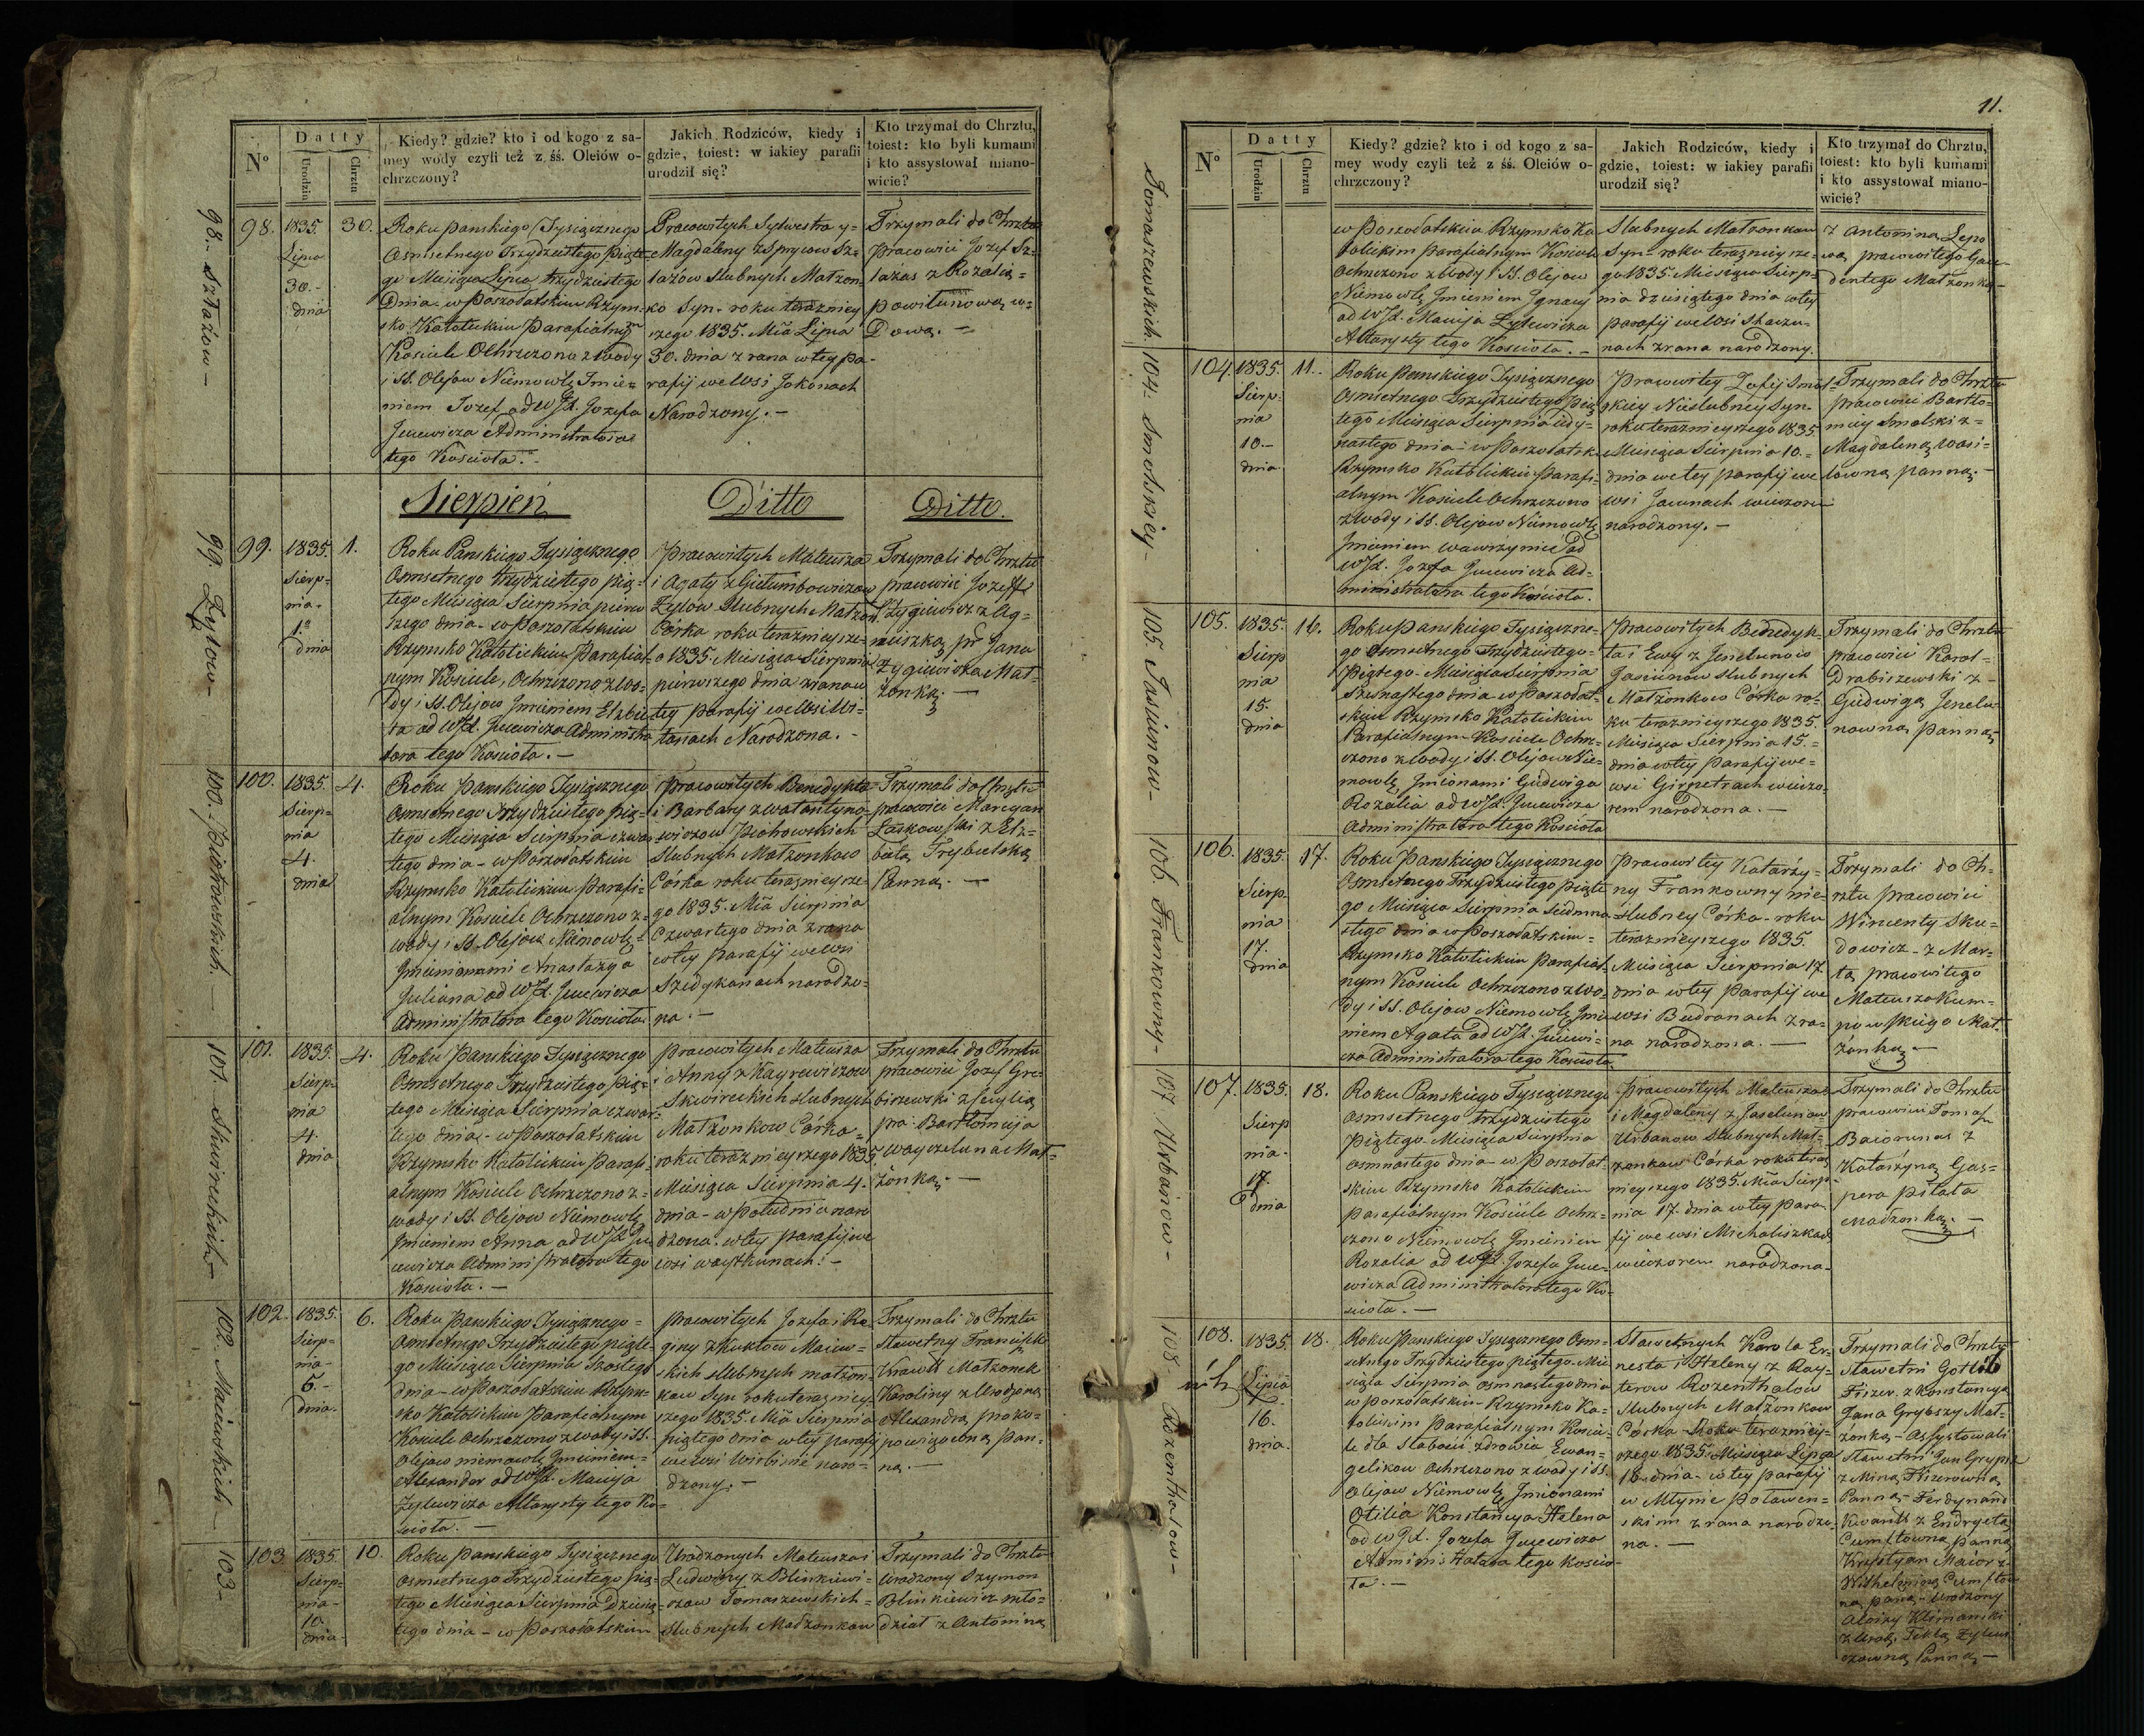 Nº
Datty
Urodzin
Chrztu
Kiedy? gdzie? kto i od kogo z sa-
mey wody czyli też z śś. Oleiów o-
chrzczony?
Jakich Rodziców, kiedy i
gdzie, toiest: w iakiey parafii
urodził się?
Kto trzymał do Chrztu,
toiest: kto byli kumami
i kto assystował miano-
wicie?
98.
1835
Lipca
30.-
dnia
30.
Roku Panskiego Tysiącznego
Osmsetnego Trzydziestego Piąte-
go Miesiąca Lipca trzydziestego
Dnia - w Poszołatskim Rzym-
sko Katolickim Parafialnym
Kosciele Ochrzczono z wody
i SS. Olejow Niemowlę Imie=
niem Jozef od WJX. Jozefa
Administratora
tego Kosciola.-
Pracowitych Sylwestra y-
Magdaleny
Slubnych Malzon-
ko Syn - roku terazniey
szego 1835. Mca Lipca
30. dnia z rana w tey pa-
rafij we Wsi Jokonach
Narodzony.-
Trzymali do Chrztu
Pracowici Jozef
z Rozalią
wo=
Dową.-
98.- Sztażow-
Sierpień
Ditto
Ditto.
99.
1835.
Sierp=
nia-
1.
dnia
1.
Roku Panskiego Tysiącznego
Osmsetnego trzydziestego pią-
tego Miesiąca Sierpnia pierw
szego dnia - w Poszołatskim
Rzymsko Katolickim Parafial-
nym Kosciele, Ochrzczono z wo-
dy i SS. Olejow Imieniem Elzbie
ta od WJX. Administra
tora tego Kosciola.-
Pracowitych Mateusza
i Agaty z
Zyłow Slubnych Malzon.
Córka roku teraznieysze-
o 1835. Miesiąca Sierpnia
pierwszego dnia z rana w
tey parafij we Wsi
Narodzona.-
Trzymali do Chrztu
pracowici Jozeff
z Ag-
nieszką pr Jana
Zygiewicza Mał-
żonką.-
99. Zyłow-
100.
1835.
Sierp=
nia
4.
dnia
4.
Roku Panskiego Tysiącznego
Osmsetnego Trzydziestego pią-
tego Miesiąca Sierpnia czwar
tego dnia - w Poszołatskim
Rzymsko Katolickim Parafi-
alnym Kosciele Ochrzczono z-
wody i SS. Olejow Niemowlę
Imionami Anastazya
Juliana od WJX.
Administratora tego Kosciola
Pracowitych Benedykta
i Barbary z Walantyno-
wiczow Piotrowskich
Slubnych Malzonkow
Córka roku teraznieysze-
go 1835. Mca Sierpnia
Czwartego dnia z rana
w tey parafij we wsi
Szedykanach narodzo-
na.-
Trzymali do Chrztu
pracowici Marcyan
Laskowski z Elz-
bietą Trybulską
Panną.-
100. Piotrowskich.-
101.
1835.
Sierp-
nia
4.
dnia
4.
Roku Panskiego Tysiącznego
Osmsetnego Trzydziestego pią-
tego Miesiąca Sierpnia czwar-
tego dnia - w Poszołatskim
Rzymsko Katolickim Parafi-
alnym Kosciele Ochrzczono z-
wody i SS. Olejow Niemowlę
Imieniem Anna od WJX.
Administratora tego
Kosciola.-
Pracowitych Mateusza
i Anny z Kayrewiczow
Skwireckich slubnych
Malzonkow Córka-
roku teraznieyszego 1835
Miesiąca Sierpnia 4.
dnia - w południa naro
dzona. w tey parafij we
wsi Waytkunach.-
Trzymali do Chrztu
pracowici Jozef Gre-
biszewski z Cecylią
pra: Bartłomieja
Mał=
żonką.-
101. Skwireckich
102.
1835.
Sierp=
nia-
5.-
Dnia-
6.
Roku Panskiego Tysiącznego-
Osmsetnego Trzydziestego piąte-
go Miesiąca Sierpnia Szostego
dnia - w Poszołatskim Rzym-
sko Katolickim Parafialnym
Kosciele Ochrzczono z wody i SS.
Olejow niemowlę Imieniem-
Alexander od WJX. Macieja
Zylewicza Altarysty tego Ko=
sciola.-
Pracowitych Jozefa i Re
giny z Maiew=
skich slubnych malzon-
kow Syn roku terazniey-
szego 1835. Mca Sierpnia
piątego dnia w tey parafij
we Wsi naro-
dzony.-
Trzymali do Chrztu
Sławetny Franciszek
Malzonek
Karoliny z Urodzoną
Alexandrą proko=
powiczowną Pan-
ną.-
102. Maiewskich-
103
1835.
Sierp=
nia-
10.
dnia-
10.
Roku Panskiego Tysiącznego
Osmsetnego Trzydziestego pią-
tego Miesiąca Sierpnia Dziesią-
tego dnia - w Poszołatskim
Urodzonych Mateusza i
Ludwiky z Blinkiewi-
czow Tomaszewskich-
Slubnych Malzonkow
Trzymali do Chrztu
Urodzony Szymon
Blinkiewicz mło=
dzian z Antoniną
103-
11.
Nº
Datty
Urodzin
Chrztu
Kiedy? gdzie? kto i od kogo z sa-
mey wody czyli też z śś. Oleiów o-
chrzczony?
Jakich Rodziców, kiedy i
gdzie, toiest: w iakiey parafii
urodził się?
Kto trzymał do Chrztu,
toiest: kto byli kumami
i kto assystował miano-
wicie?
w Poszołatskim Rzymsko Ka
tolickim Parafialnym Kosciele
Ochrzczono z wody i SS. Olejow
Niemowlę Imieniem Ignacy
od WJX. Macieja Zylewicza
Altarysty tego Kosciola.-
Slubnych Malzonkow
Syn - roku teraznieysze-
go 1835 Miesiąca Sierp-
nia dziesiątego dnia w tey
parafij we Wsi
nach z rana narodzony.
z Antoniną
wą, pracowitego
Malzonką-
Tomaszewskich.
104.
1835.
Sierp-
nia
10.-
dnia
11.
Roku Panskiego Tysiącznego
Osmsetnego Trzydziestego pią
tego Miesiąca Sierpnia iedy-
nastego dnia - w Poszołatsk-
Rzymsko Katolickim Parafi-
alnym Kosciele Ochrzczono
z wody i SS. Olejow Niemowlę
Imieniem Wawrzyniec od
WJX. Jozefa Ad-
ministratora tego Kosciola.
Pracowitey Zofij Smol-
skiey Nieslubney Syn-
roku teraznieyszego 1835
Miesiąca Sierpnia 10.-
dnia w tey parafij we
wsi wieczorem
narodzony.-
Trzymali do Chrztu
pracowici Bartło-
miey Smolski z-
Magdaleną Wasi-
lowną panną.-
104. Smolskiey-
105.
1835.
Sierp
nia
15.
dnia
16.
Roku Panskiego Tysiączne-
go Osmsetnego Trzydziestego-
Piątego Miesiąca Sierpnia
Szesnastego dnia - w Poszołat-
skim Rzymsko Katolickim
Parafialnym Kosciele Ochrz-
czono z wody i SS. Olejow Nie-
mowlę Imionami Gudwiga
Rozalia od WJX.
Administratora tego Kosciola
Pracowitych Benedyk-
ta i Ewy z
Jasiunow slubnych
Malzonkow Córka ro-
ku teraznieyszego 1835
Miesiąca Sierpnia 15.-
dnia w tey Parafij we-
wsi Girpetrach wieczo-
rem narodzona.-
Trzymali do Chrztu
pracowici Karol-
Drabiszewski z-
Gudwigą
nowną panną
105. Jasiunow-
106.
1835.
Sierp-
nia
17.
dnia
17.
Roku Panskiego Tysiącznego
Osmsetnego Trzydziestego piąte
go Miesiąca Sierpnia siedmna-
stego dnia w Poszołatskim-
Rzymsko Katolickim Parafial-
nym Kosciele Ochrzczono z wo-
dy i SS. Olejow Niemowlę Imie
niem Agata od WJX.
Administratora tego Kosciola.
Pracowitey Katarzy-
ny Frankowny nie-
slubney Córka - roku
teraznieyszego 1835.
Miesiąca Sierpnia 17
dnia w tey Parafij we
wsi Budranach z ra-
na narodzona.-
Trzymali do Ch-
rztu pracowici
Wincenty Sku-
dowicz - z Mar-
tą pracowitego
Mateusza Kum-
powskiego Mał.
żonką.-
106. Frankowny-
107.
1835.
Sierp
nia-
17.
dnia
18.
Roku Panskiego Tysiącznego
osmsetnego trzydziestego
Piątego Miesiąca Sierpnia
osmnastego dnia - w Poszołat-
skim Rzymsko Katolickim
parafialnym Kosciele Ochrz-
czono Niemowlę Imieniem
Rozalia od WJX. Jozefa
Administratora tego Ko-
sciola.-
Pracowitych Mateusza
i Magdaleny z
Urbanow Slubnych Mał-
zonkow Córka roku teraz
nieyszego 1835. Mca Sierp-
nia 17. dnia w tey Para-
fij we wsi Michaliszkach
wieczorem narodzona-
Trzymali do Chrztu
pracowici Tomasz
Baiorunas z
Katarzyną Gas=
pera Piłata
Madzonką.-
107 Urbanow-
108.
1835
Lipca
16.
dnia.
18.
Roku Panskiego Tysiącznego Osm-
setnego Trzydziestego piątego Mie
siąca Sierpnia osmnastego dnia
w poszołatskim Rzymsko Ka-
tolickim Parafialnym Koscie-
le dla słabosci zdrowia Ewan-
gelikow Ochrzczono z wody i SS.
Olejow Niemowlę Imionami
Otilia Konstancya Helena
od WJX. Jozefa
Administratora tego Koscio-
ła.-
Sławetnych Karola Er-
nesta i Heleny z Ray-
terow Rozenthalow
Slubnych Malzonkow
Córka - Roku terazniey-
szego 1835 Miesiąca Lipca
16 dnia - w tey parafij
w Młynie Poławen-
skim z rana narodzo-
na.-
Trzymali do Chrztu
Sławetni Gotlib
Frizer. z Konstancyą
Jana Grybszy Mał-
zonką - Assystowali
Sławetni Jan
z Miną Frizerowną
Panną - Ferdynand
z Endryetą
panną
Krystyan Maior z
Wilhelminą
panną - Urodzony
Aloizy Klimanski
z Urodz. Teklą
Panną-
108 Rozenthalow-